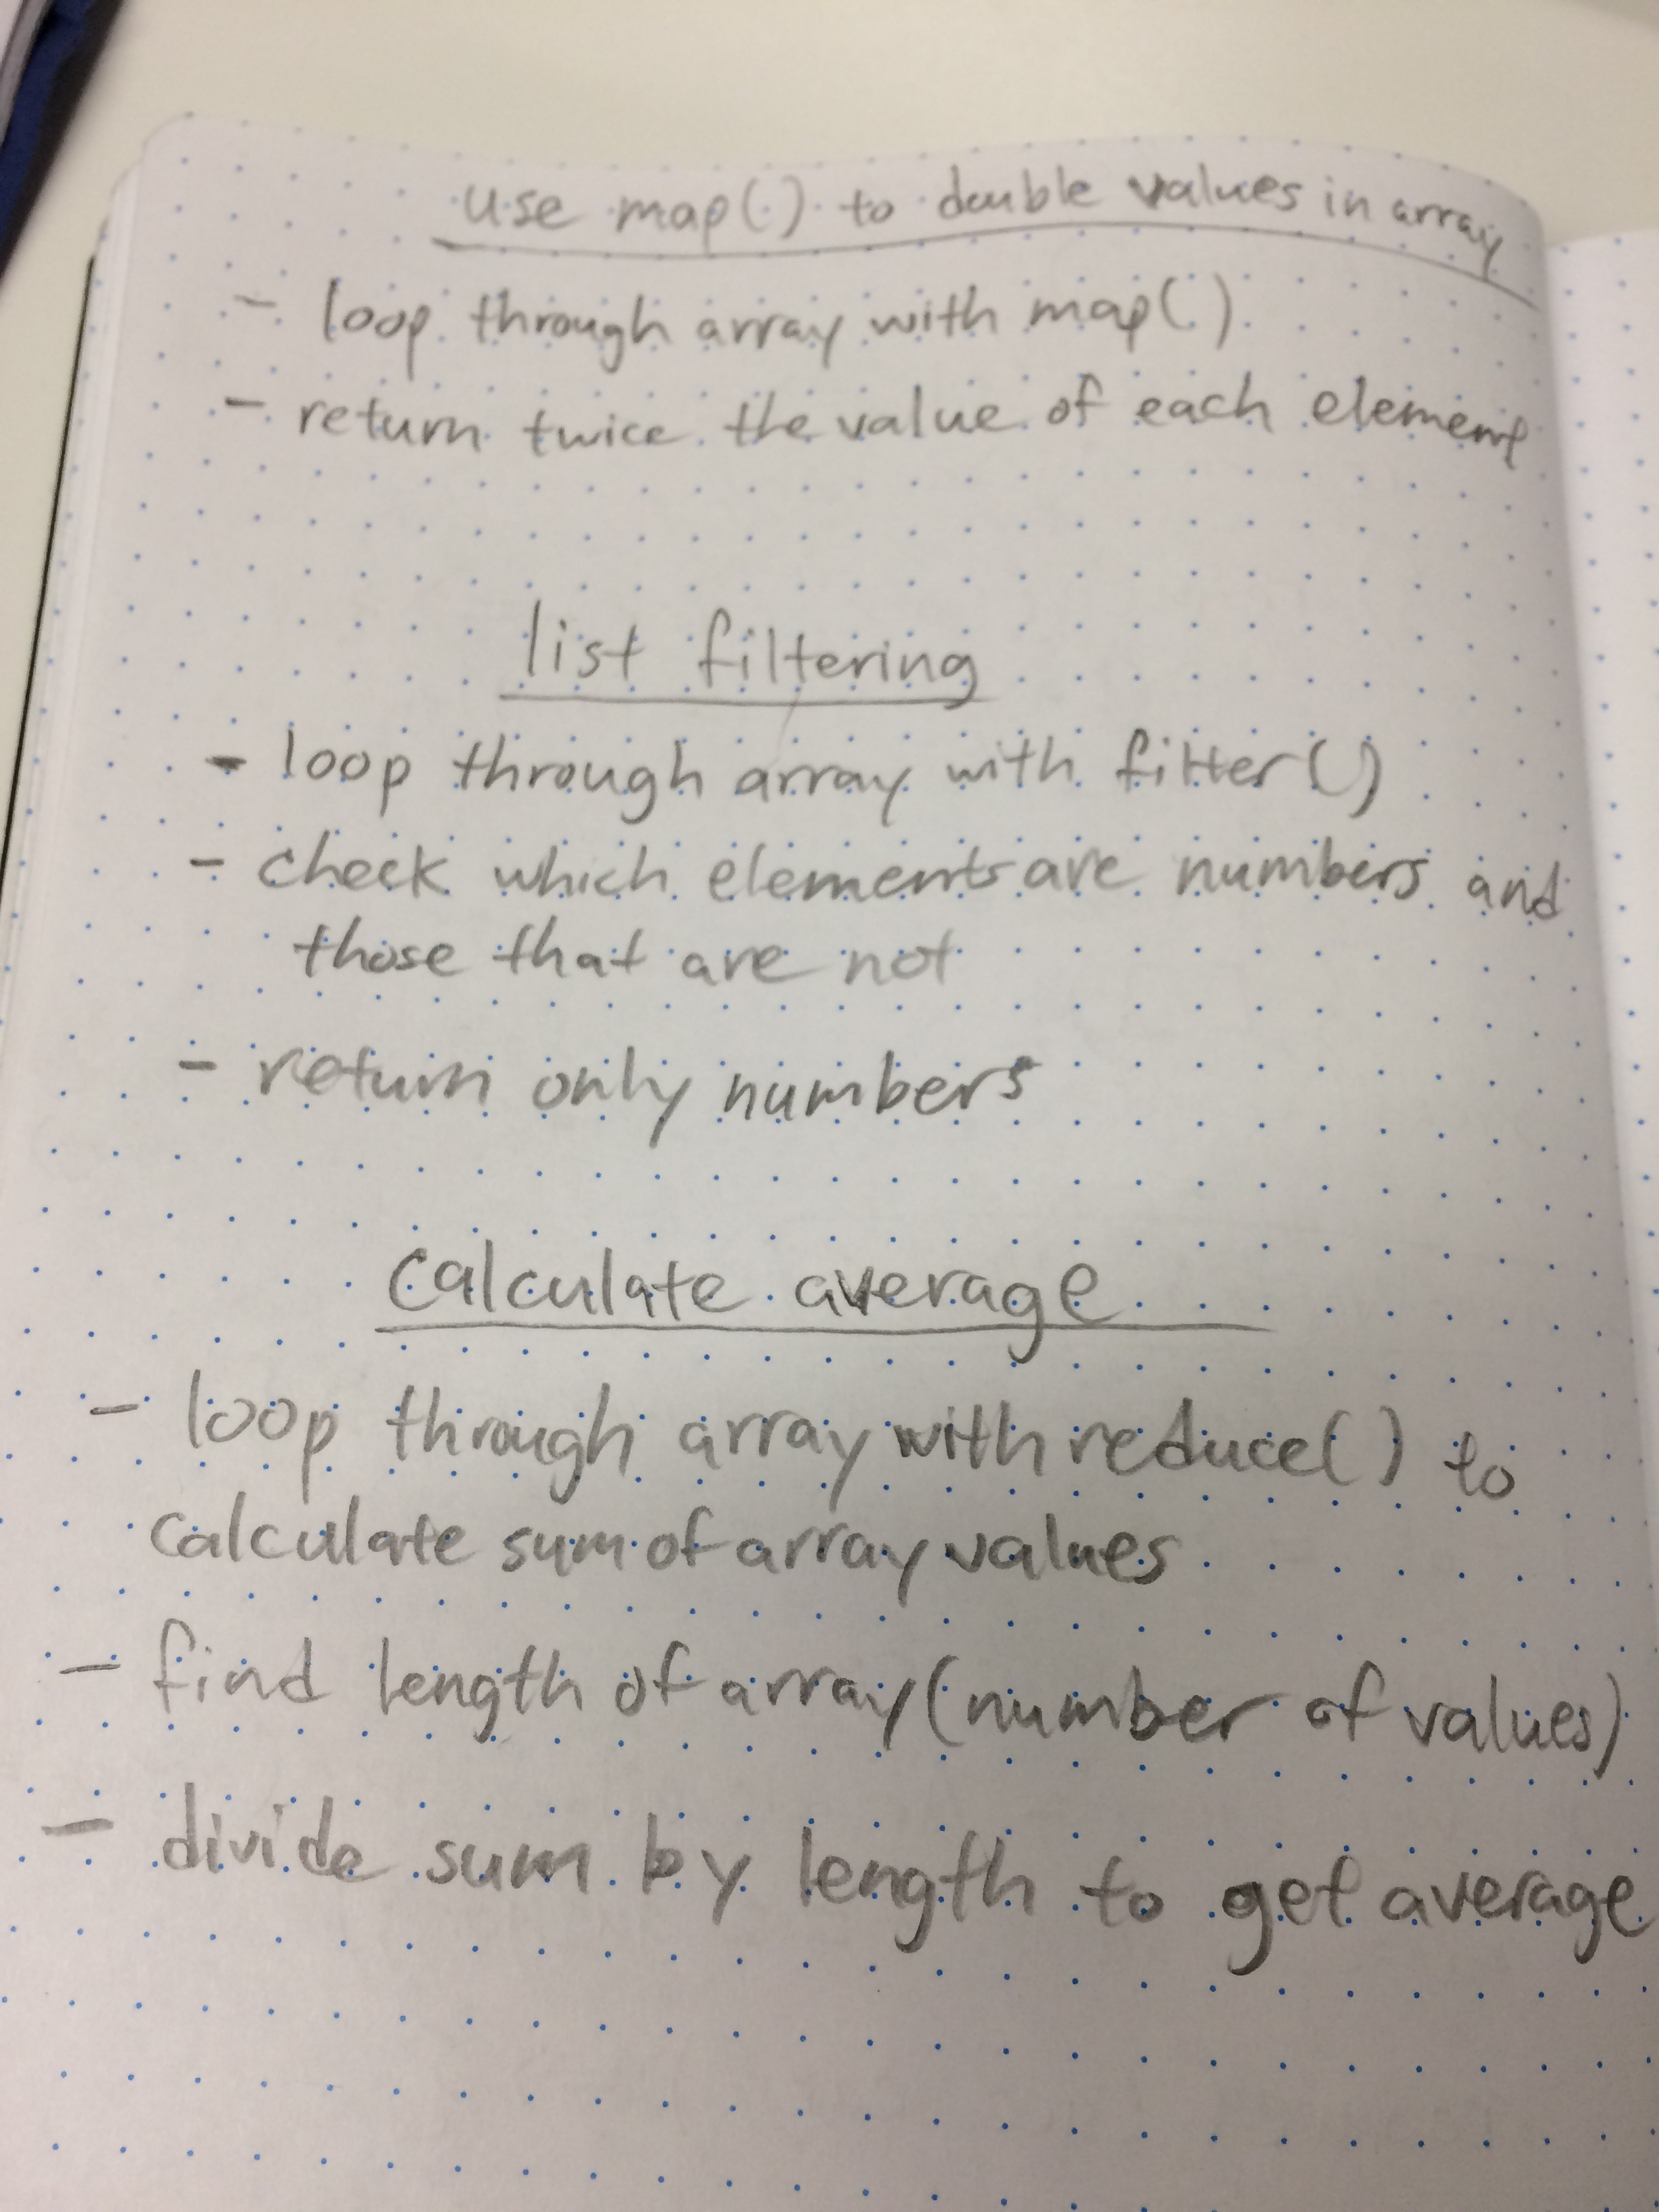 use map() to double values in array
- loop through array with map()
- return twice the value of each element
list filtering
- loop through array with filter()
- check which elements are numbers and
those that are not
- return only numbers
calculate average
- loop through array with reduce() to
calculate sum of array values
- find length of array (number of values)
- divide sum by length to get average